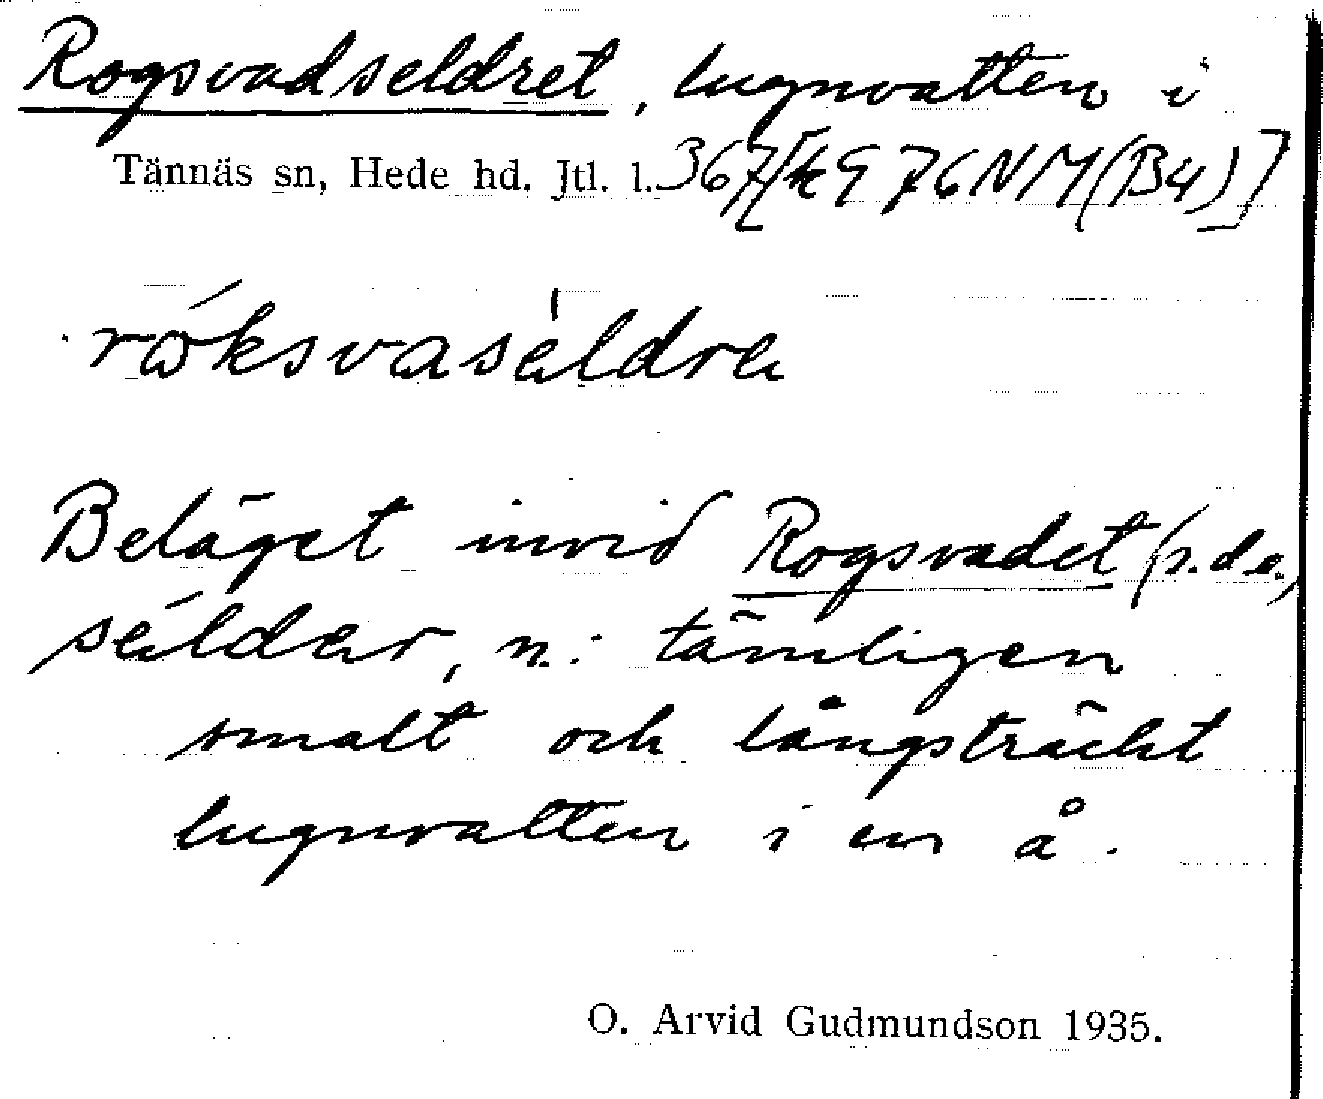 Rogsvadseldret, lugnvatten i
Tännäs sn, Hede hd. Jtl. l. 367[k976NM(B4)]
råksvaseldra
Beläget invid Rogsvadet (s.d.o.,
seldar, n.: tämligen
smalt och långsträckt
lugnvatten i en å.
O. Arvid Gudmundson 1935.